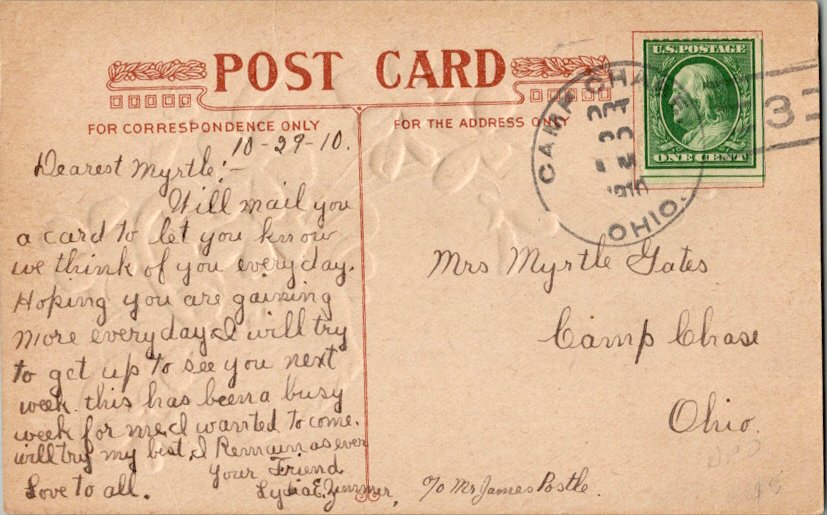 POST CARD
FOR CORRESPONDENCE ONLY
FOR THE ADDRESS ONLY
U.S. POSTAGE
ONE CENT
CAMP CHASE
OCT
1910
OHIO.
3
10-29-10.
Dearest Myrtle:-
Will mail you
a card to let you know
we think of you every day.
Hoping you are gaining
more every day & I will try
to get up to see you next
week. this has been a busy
week for me. I wanted to come.
will try my best. I Remain as ever
Your Friend
Love to all. Lydia E.
Mrs Myrtle Gates
Camp Chase
Ohio.
℅ Mr James Postle.
$5